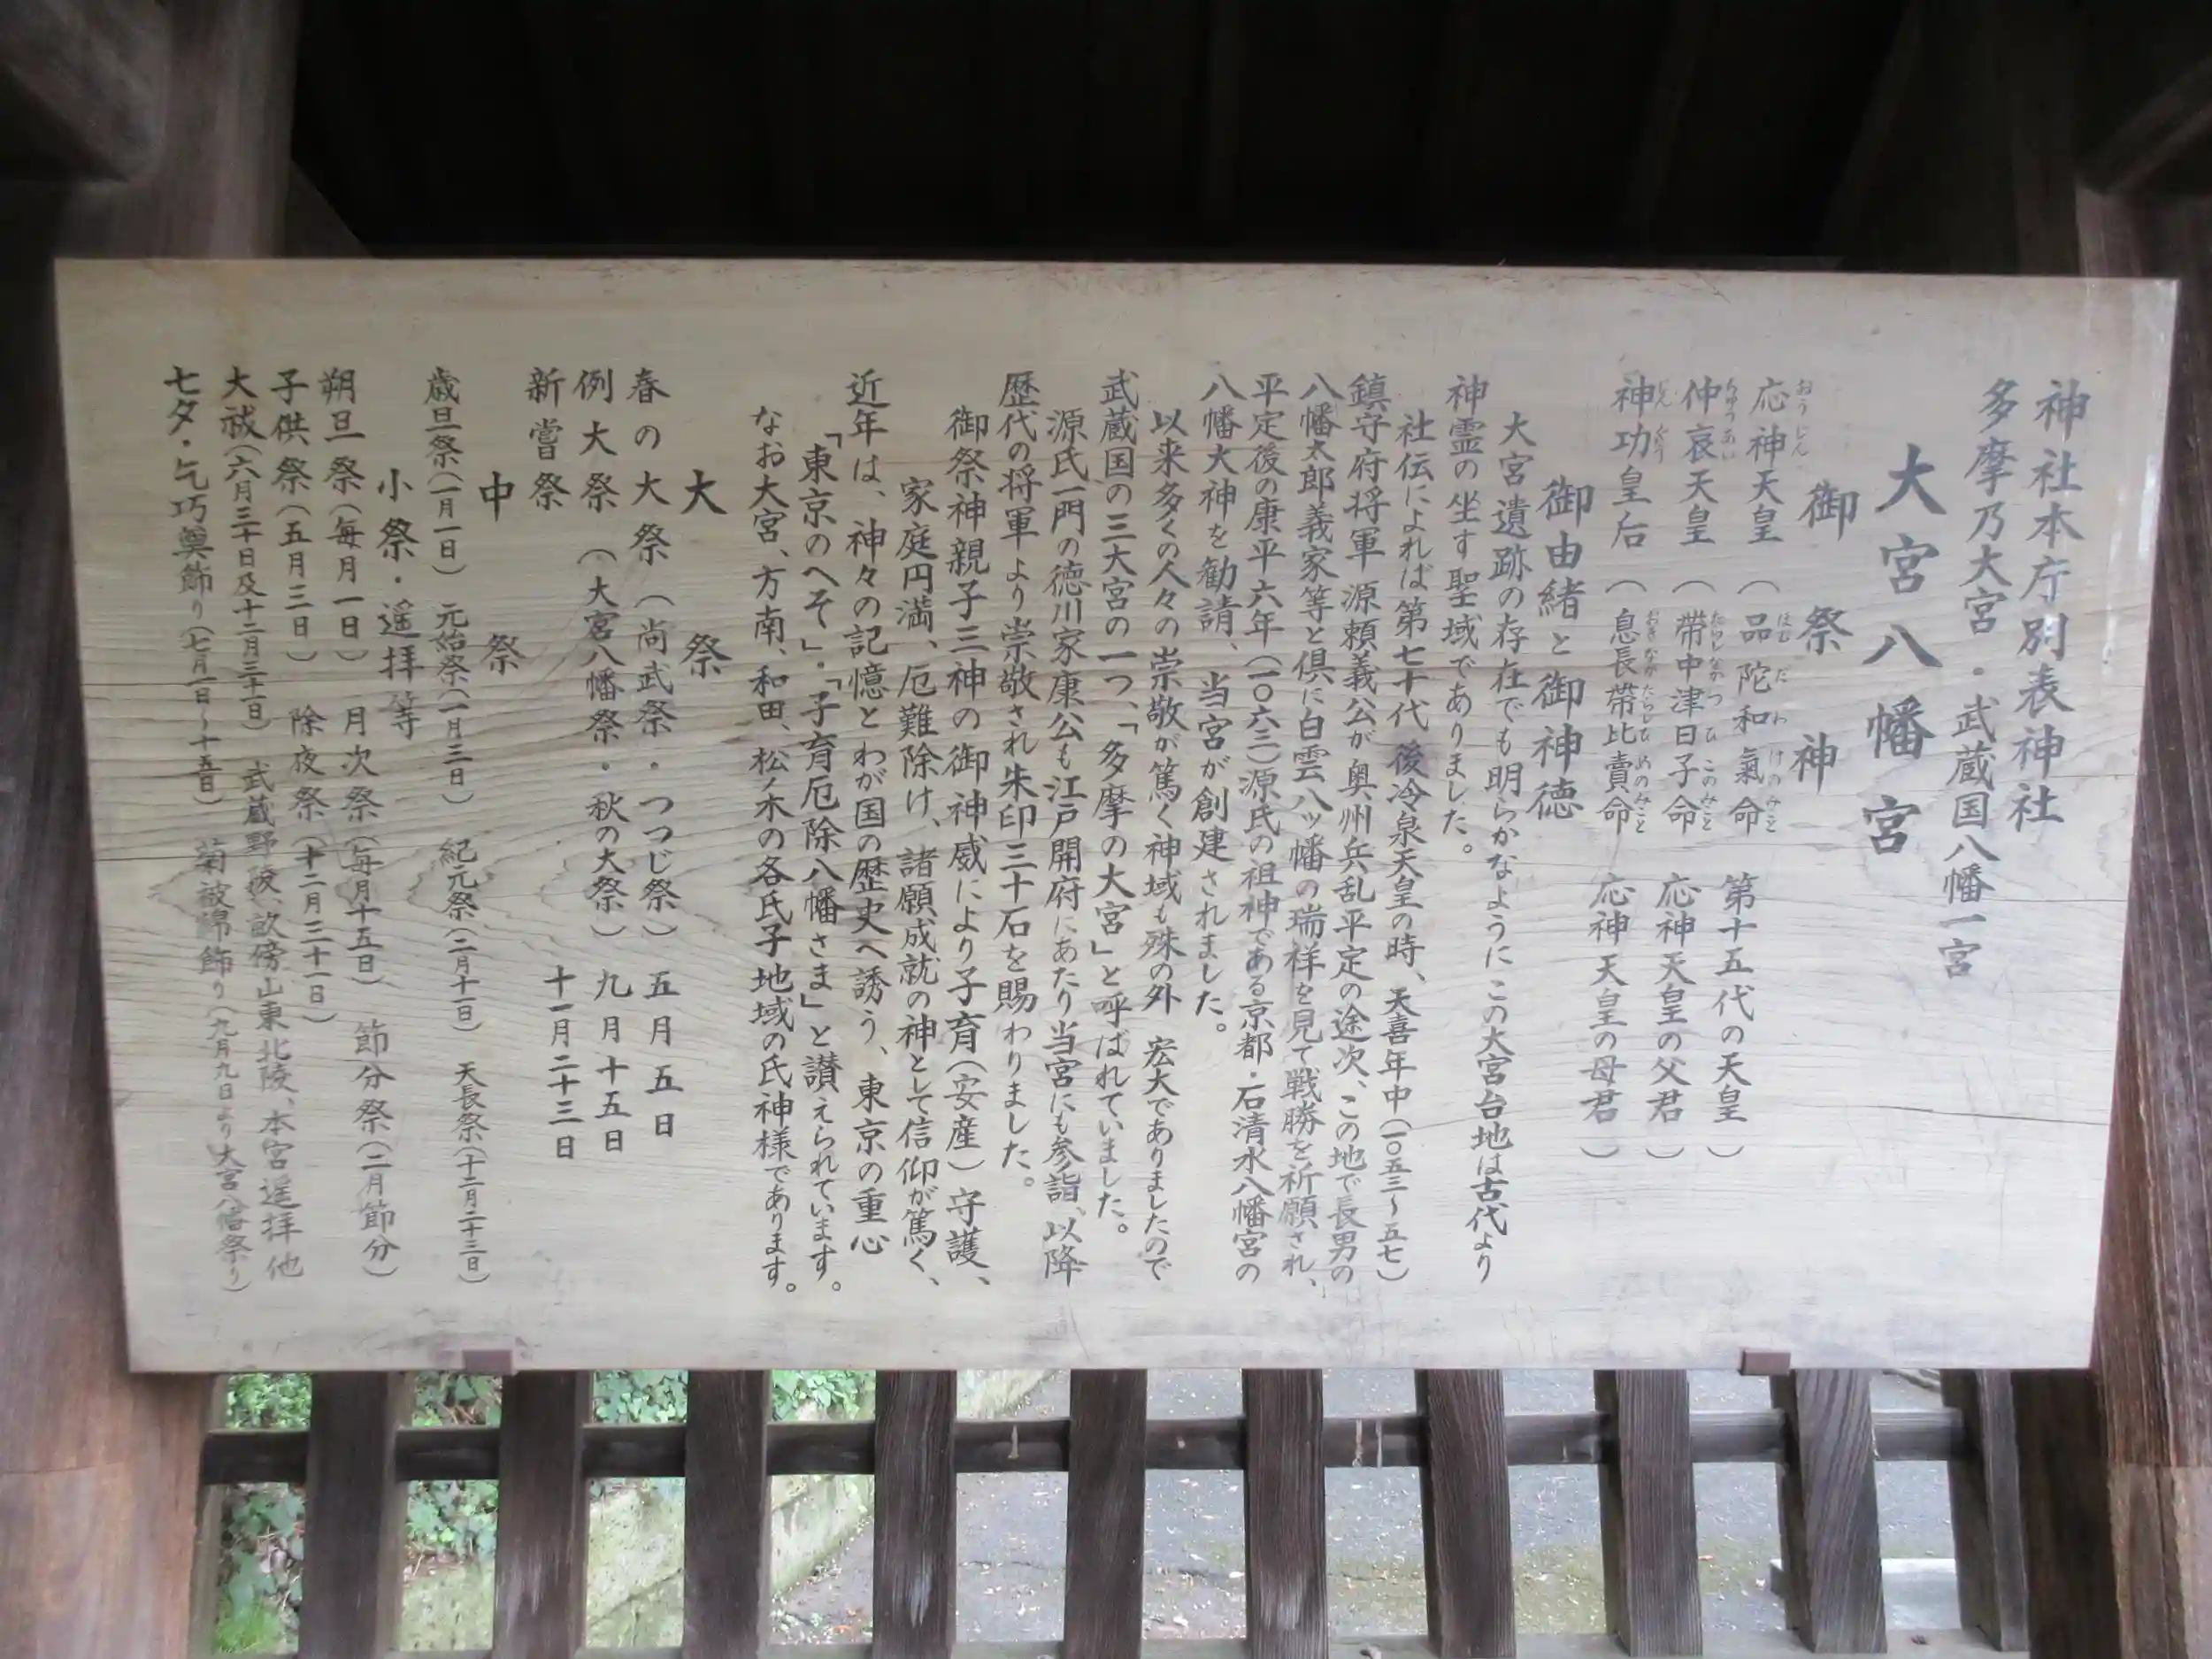 神社本庁別表神社
多摩乃大宮・武蔵国八幡一宮
大宮八幡宮
御祭神
応神天皇（品陀和氣命　第十五代の天皇）
仲哀天皇（帶中津日子命　応神天皇の父君）
神功皇后（息長帶比賣命　応神天皇の母君）
御由緒と御神徳
大宮遺跡の存在でも明らかなようにこの大宮台地は古代より
神霊の坐す聖域でありました。
社伝によれば第七十代 後冷泉天皇の時、天喜年中（一〇五三～五七）
鎮守府将軍 源頼義公が奥州兵乱平定の途次、この地で長男の
八幡太郎義家等と倶に白雲八ッ幡の瑞祥を見て戦勝を祈願され、
平定後の康平六年（一〇六三）源氏の祖神である京都・石清水八幡宮の
八幡大神を勧請、当宮が創建されました。
以来多くの人々の崇敬が篤く神域も殊の外 宏大でありましたので
武蔵国の三大宮の一つ、「多摩の大宮」と呼ばれていました。
源氏一門の徳川家康公も江戸開府にあたり当宮にも参詣、以降
歴代の将軍より崇敬され朱印三十石を賜わりました。
御祭神親子三神の御神威により子育（安産）守護、
家庭円満、厄難除け、諸願成就の神として信仰が篤く、
近年は、神々の記憶とわが国の歴史へ誘う、東京の重心
「東京のへそ」・「子育厄除八幡さま」と讃えられています。
なお大宮、方南、和田、松ノ木の各氏子地域の氏神様であります。
大祭
春の大祭（尚武祭・つつじ祭）五月五日
例大祭（大宮八幡祭・秋の大祭）九月十五日
新嘗祭　十一月二十三日
中祭
歳旦祭（一月一日）　元始祭（一月三日）　紀元祭（二月十一日）　天長祭（十二月二十三日）
小祭・遥拝等
朔旦祭（毎月一日）　月次祭（毎月十五日）　節分祭（二月節分）
子供祭（五月三日）　除夜祭（十二月三十一日）
大祓（六月三十日及十二月三十一日）　武蔵野陵、畝傍山東北陵、本宮遥拝 他
七夕・乞巧奠飾り（七月一日～十五日）　菊被綿飾り（九月九日より大宮八幡祭り）